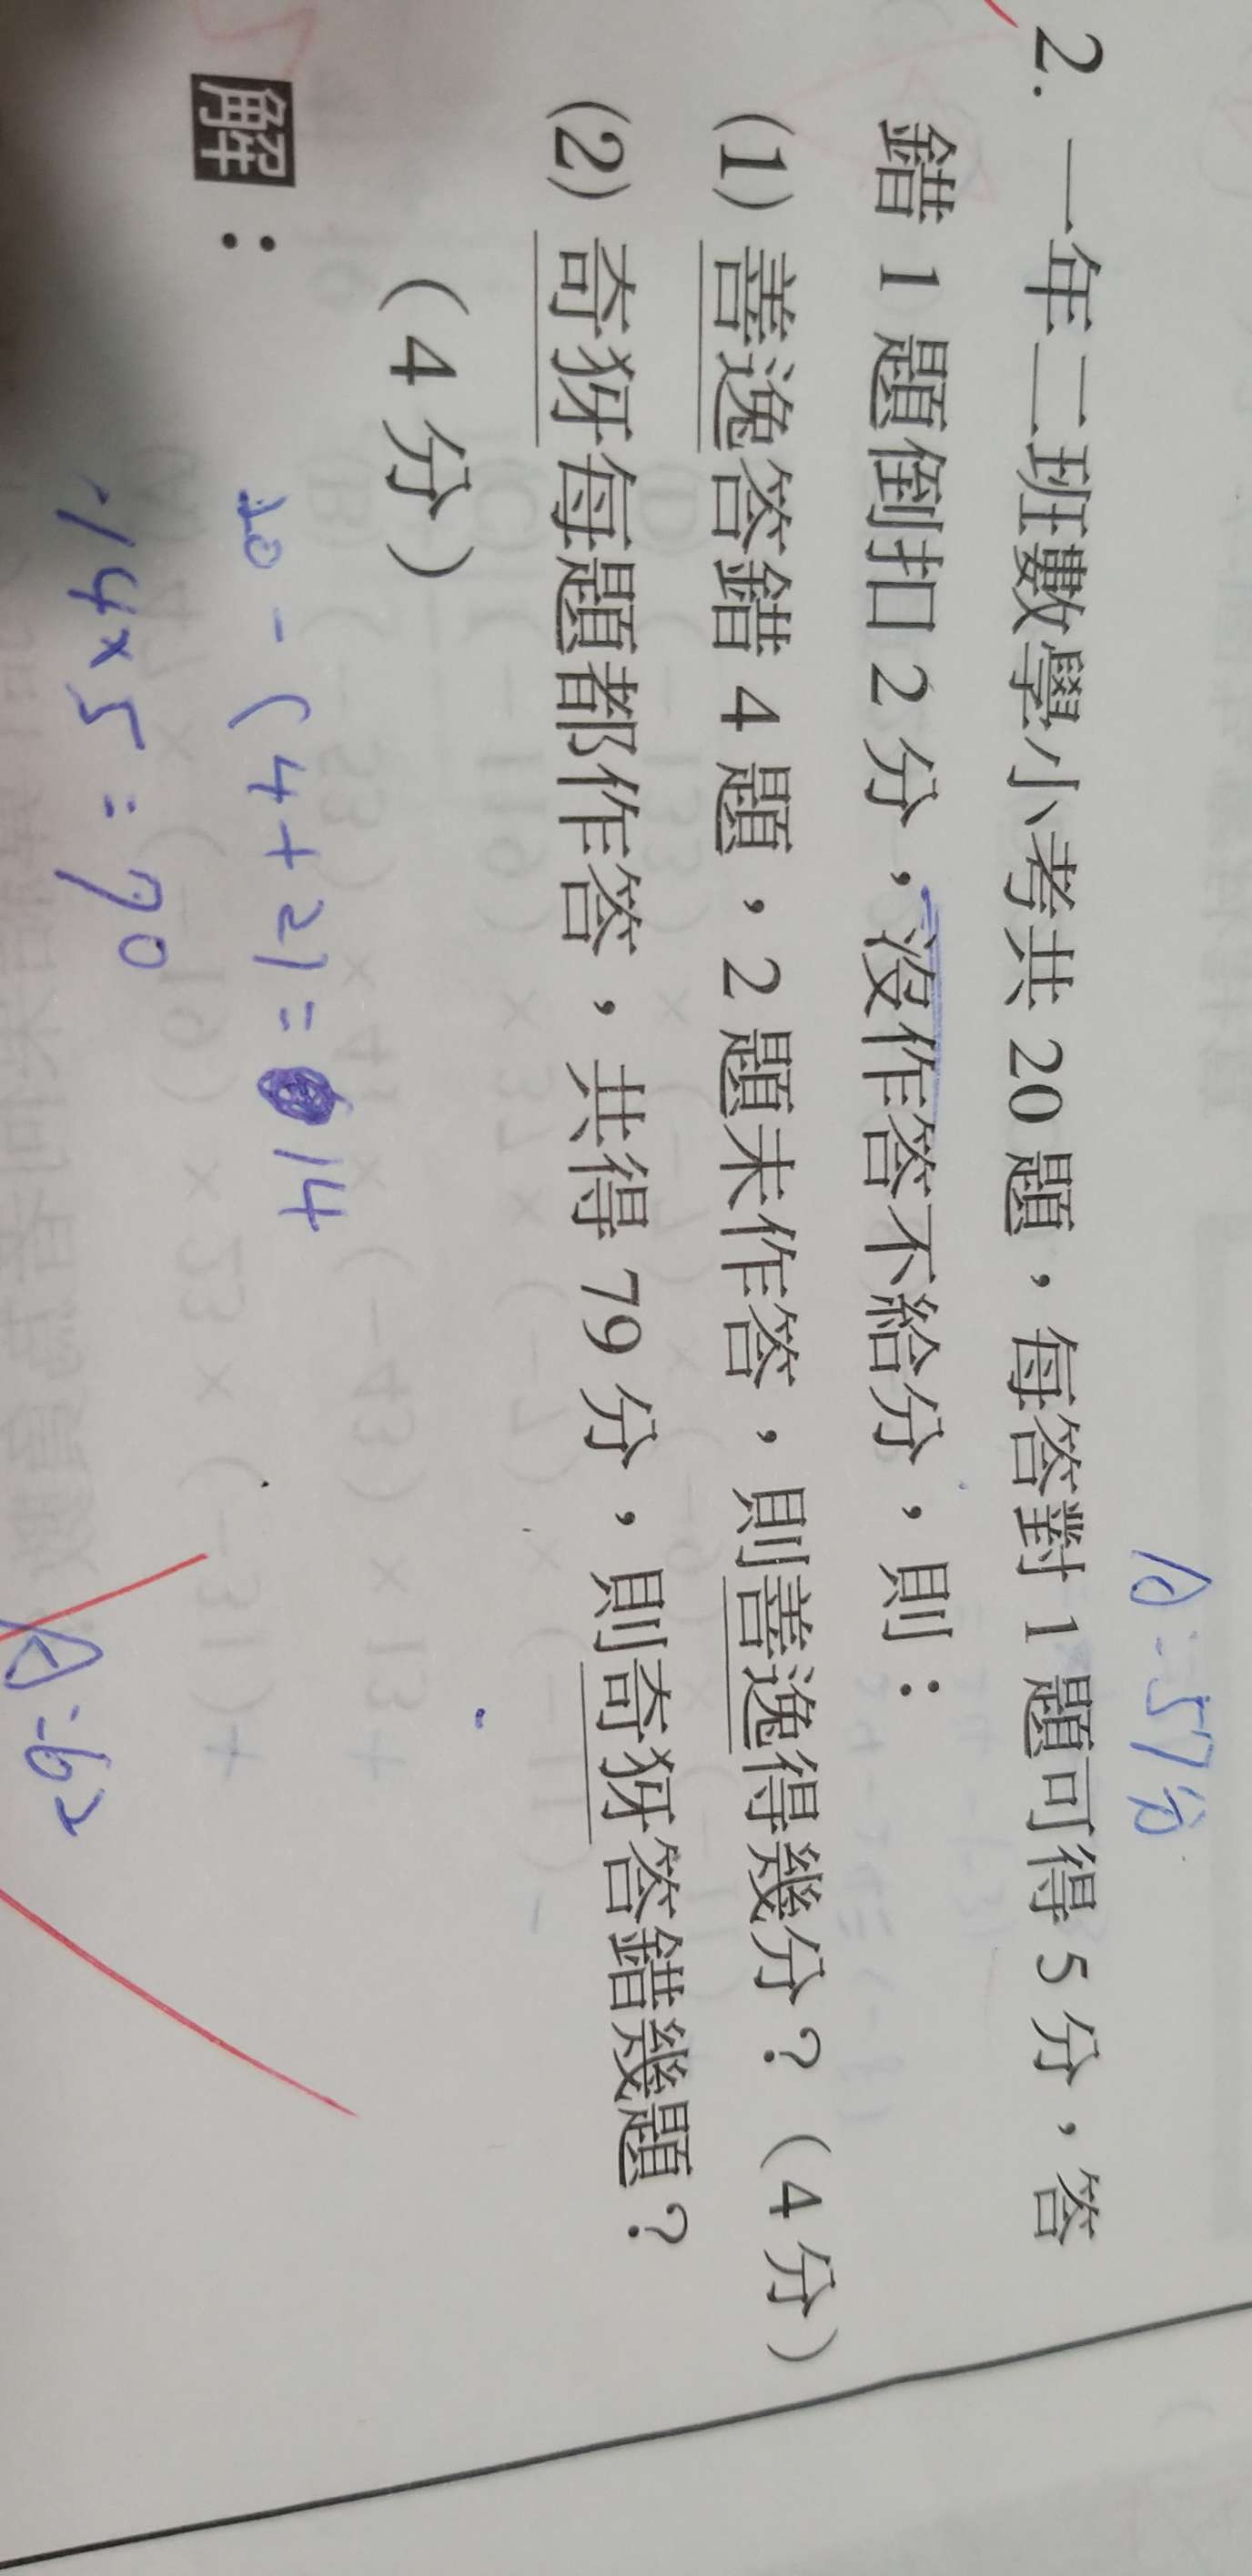 A:57分
2. 一年二班數學小考共 20 題，每答對 1 題可得 5 分，答
錯 1 題倒扣 2 分，沒作答不給分，則：
(1) 善逸答錯 4 題，2 題未作答，則善逸得幾分？（4 分）
(2) 奇犽每題都作答，共得 79 分，則奇犽答錯幾題？
（4 分）
解：
20-(4+2)=14
14×5=70
A:62